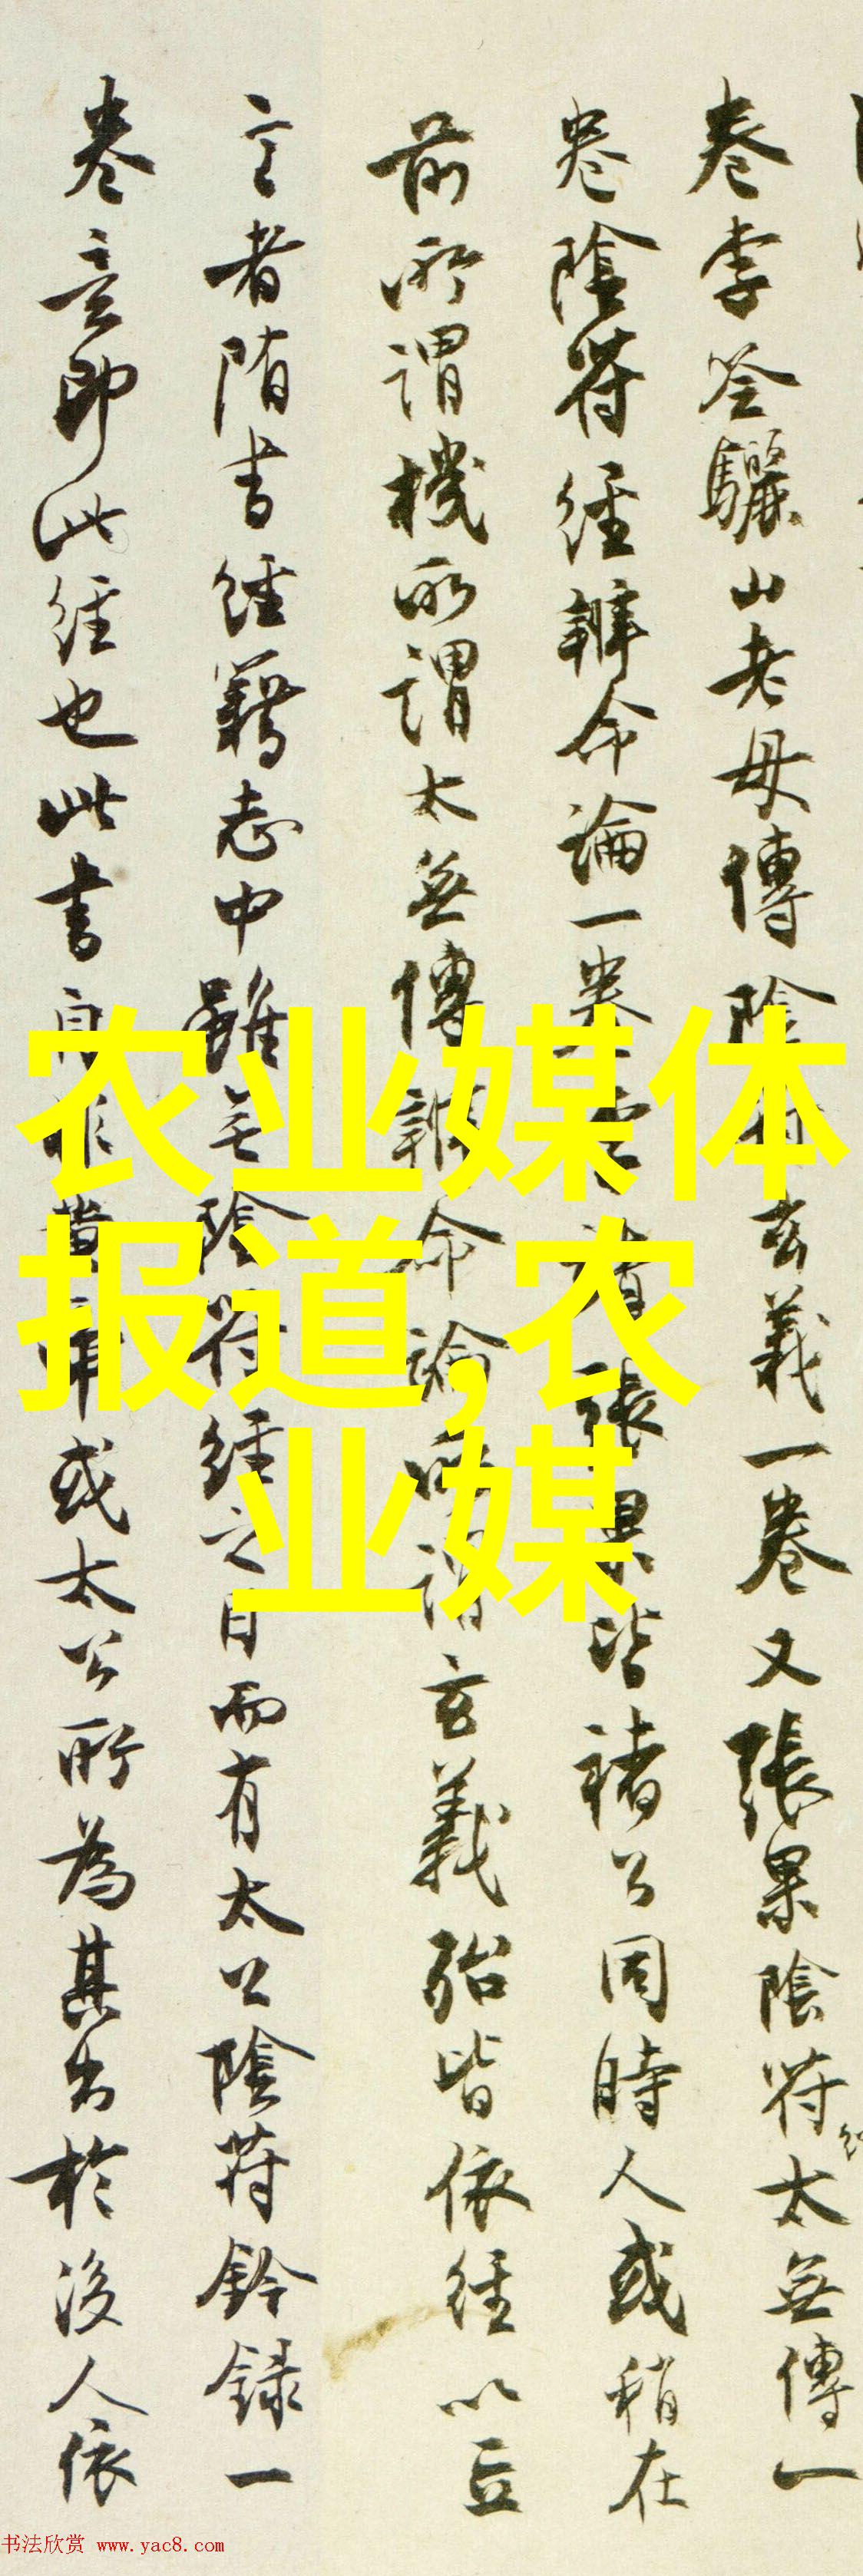 卷李筌驪山老母傳陰符玄義一卷又張果陰符太無傳一
卷陰符經辨命論一卷
張果皆褚公同時人或稍在
前所謂機所謂太無傳辨命論所謂玄義殆皆依經以立
言者隋書經籍志中雖無陰符經之目而有太公陰符鈐録一
卷意即此經也此書自非黃帝或太公所為其出於後人依
农业媒体
报道,农
业媒
书法欣赏 www.yac8.com